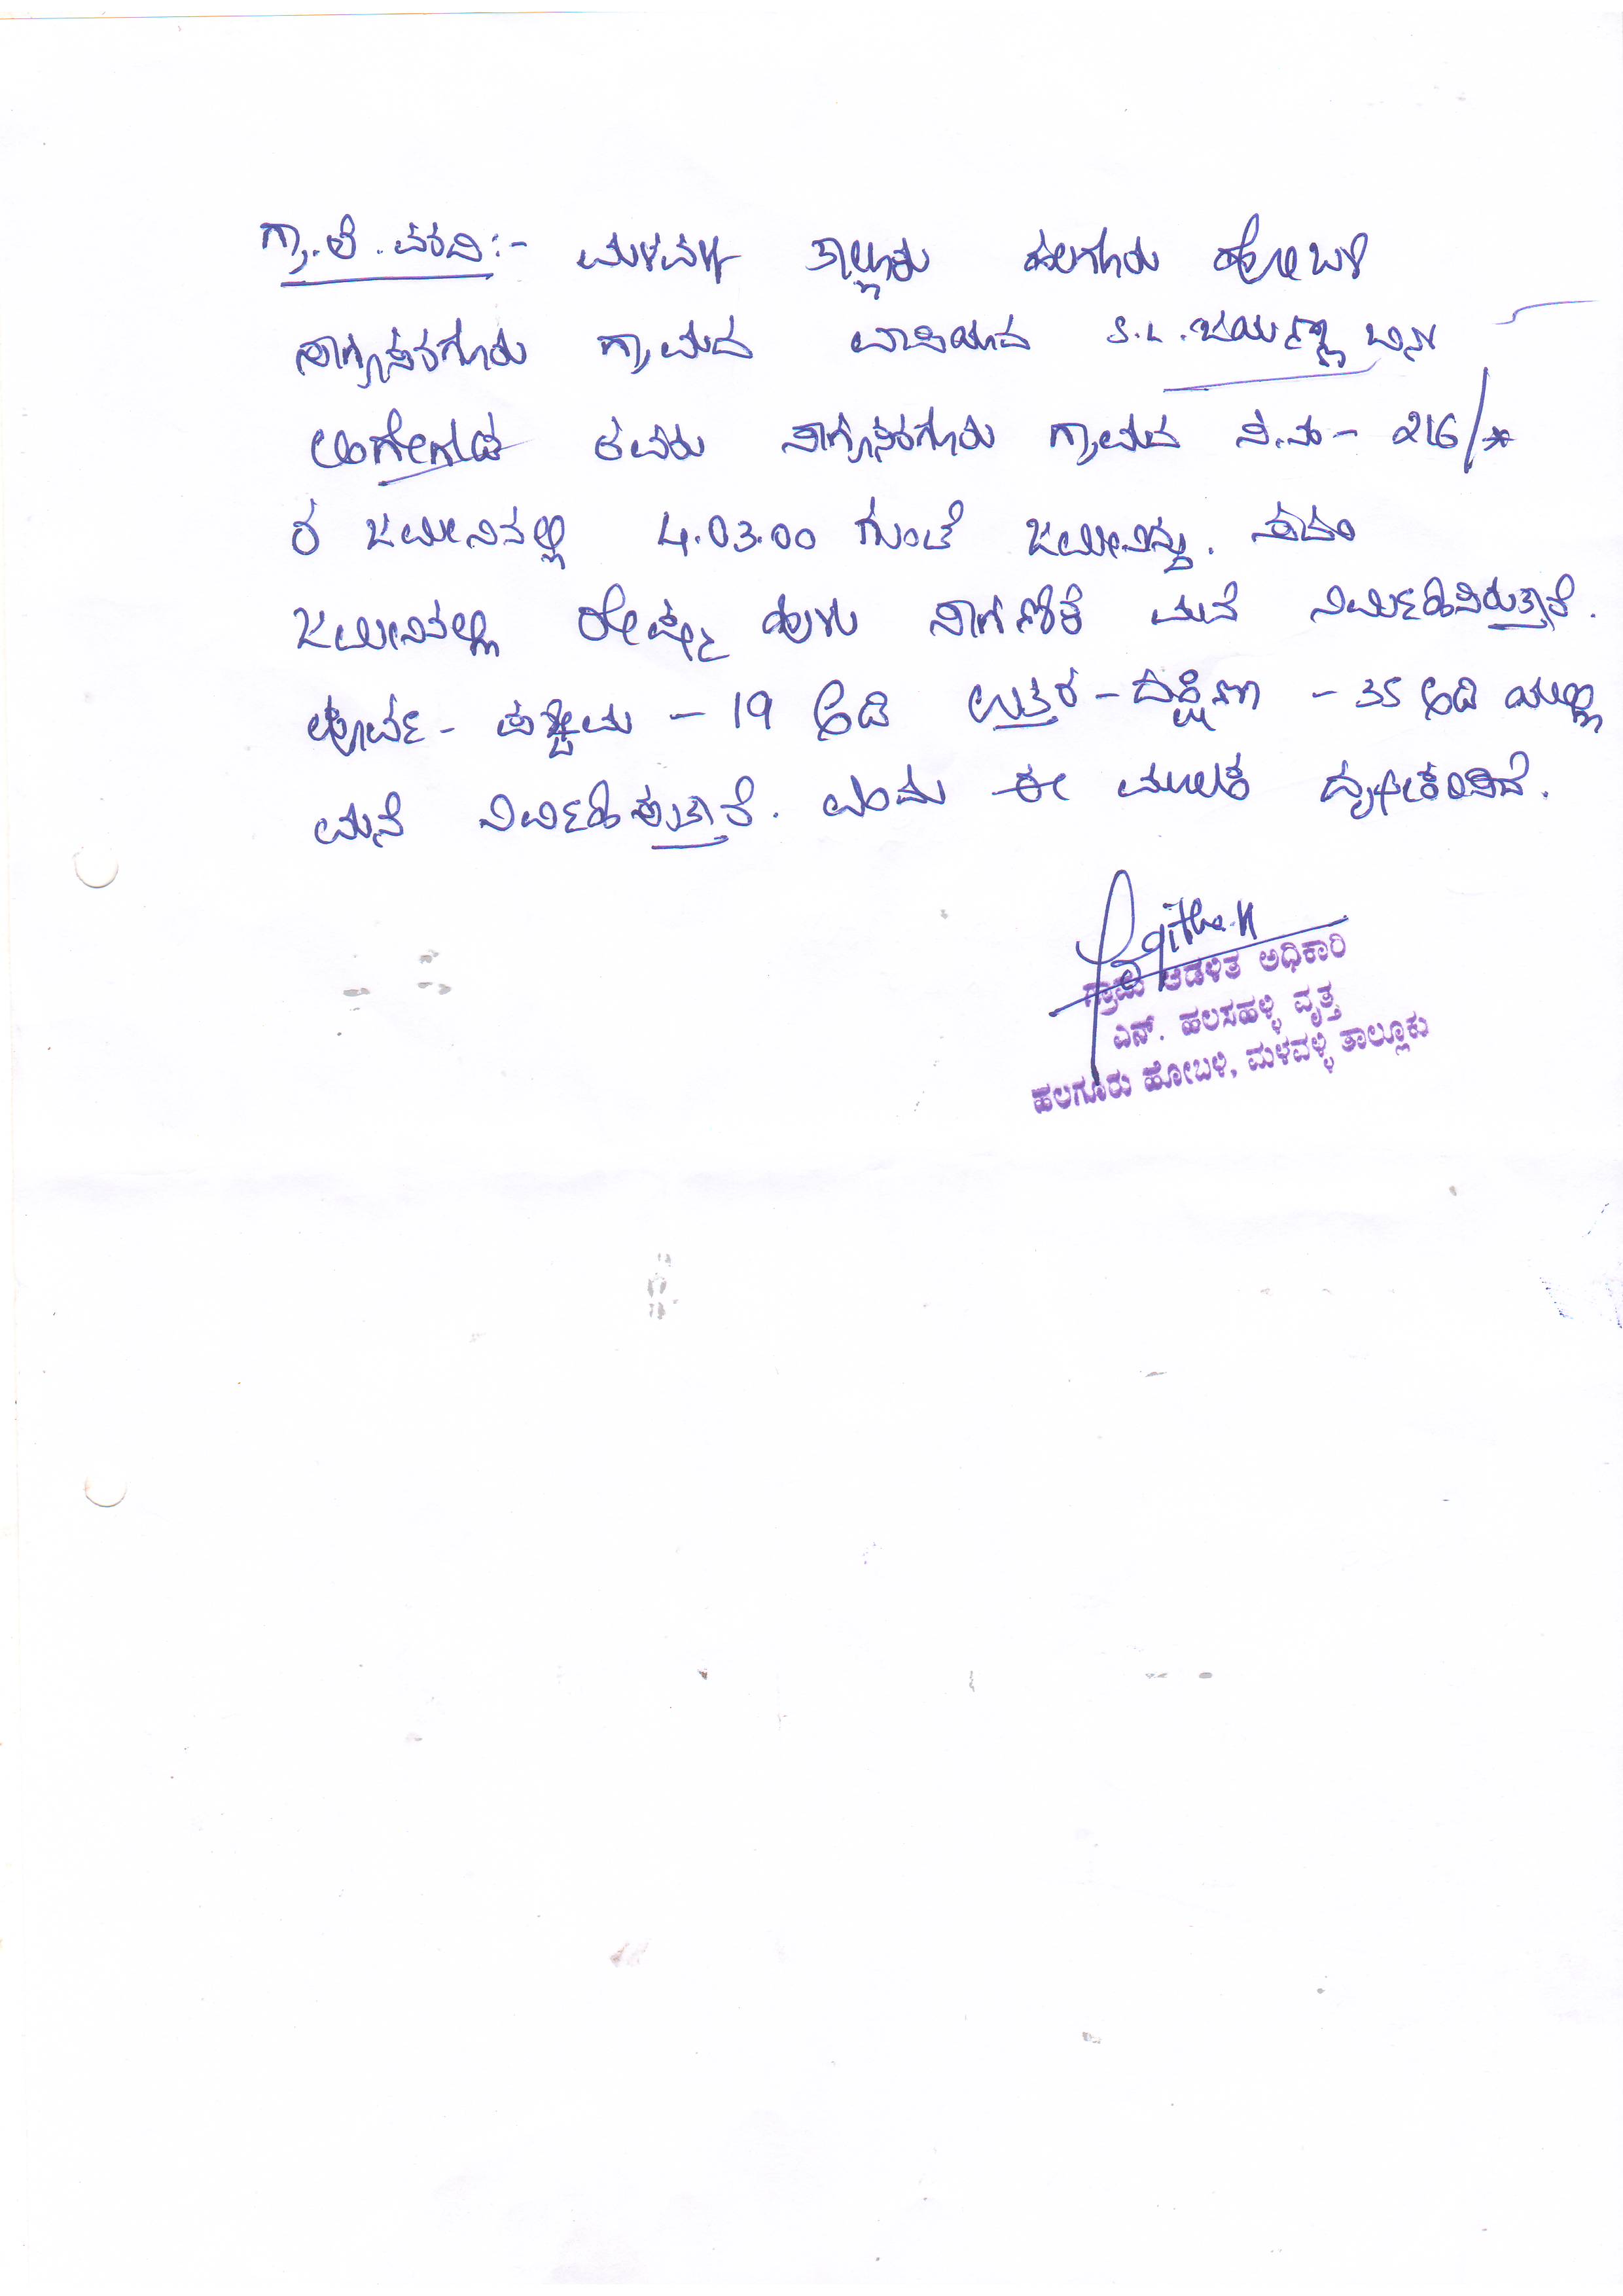 ಗ್ರಾ.ಲೆ.ವರದಿ:- ಮಳವಳ್ಳಿ ತಾಲ್ಲೂಕು ಹಲಗೂರು ಹೋಬಳಿ
ಗ್ರಾಮದ ವಾಸಿಯಾದ S.L.ಜಯಣ್ಣ ಬಿನ್
ಲಿಂಗೇಗೌಡ ರವರು ಗ್ರಾಮದ ಸ.ನಂ- 216/*
ರ ಜಮೀನಿನಲ್ಲಿ 4.03.00 ಗುಂಟೆ ಜಮೀನಿದ್ದು. ಸದರಿ
ಜಮೀನಿನಲ್ಲಿ ರೇಷ್ಮೆ ಹುಳು ಸಾಗಣಿಕೆ ಮನೆ ನಿರ್ಮಿಸಿರುತ್ತಾರೆ.
ಪೂರ್ವ- ಪಶ್ಚಿಮ - 19 ಅಡಿ ಉತ್ತರ - ದಕ್ಷಿಣ - 35 ಅಡಿ ಯಲ್ಲಿ
ಮನೆ ನಿರ್ಮಿಸಿರುತ್ತಾರೆ. ಎಂದು ಈ ಮೂಲಕ ದೃಢೀಕರಿಸಿದೆ.
ಗ್ರಾಮ ಆಡಳಿತ ಅಧಿಕಾರಿ
ಎನ್. ಹಲಸಹಳ್ಳಿ ವೃತ್ತ
ಹಲಗೂರು ಹೋಬಳಿ, ಮಳವಳ್ಳಿ ತಾಲ್ಲೂಕು